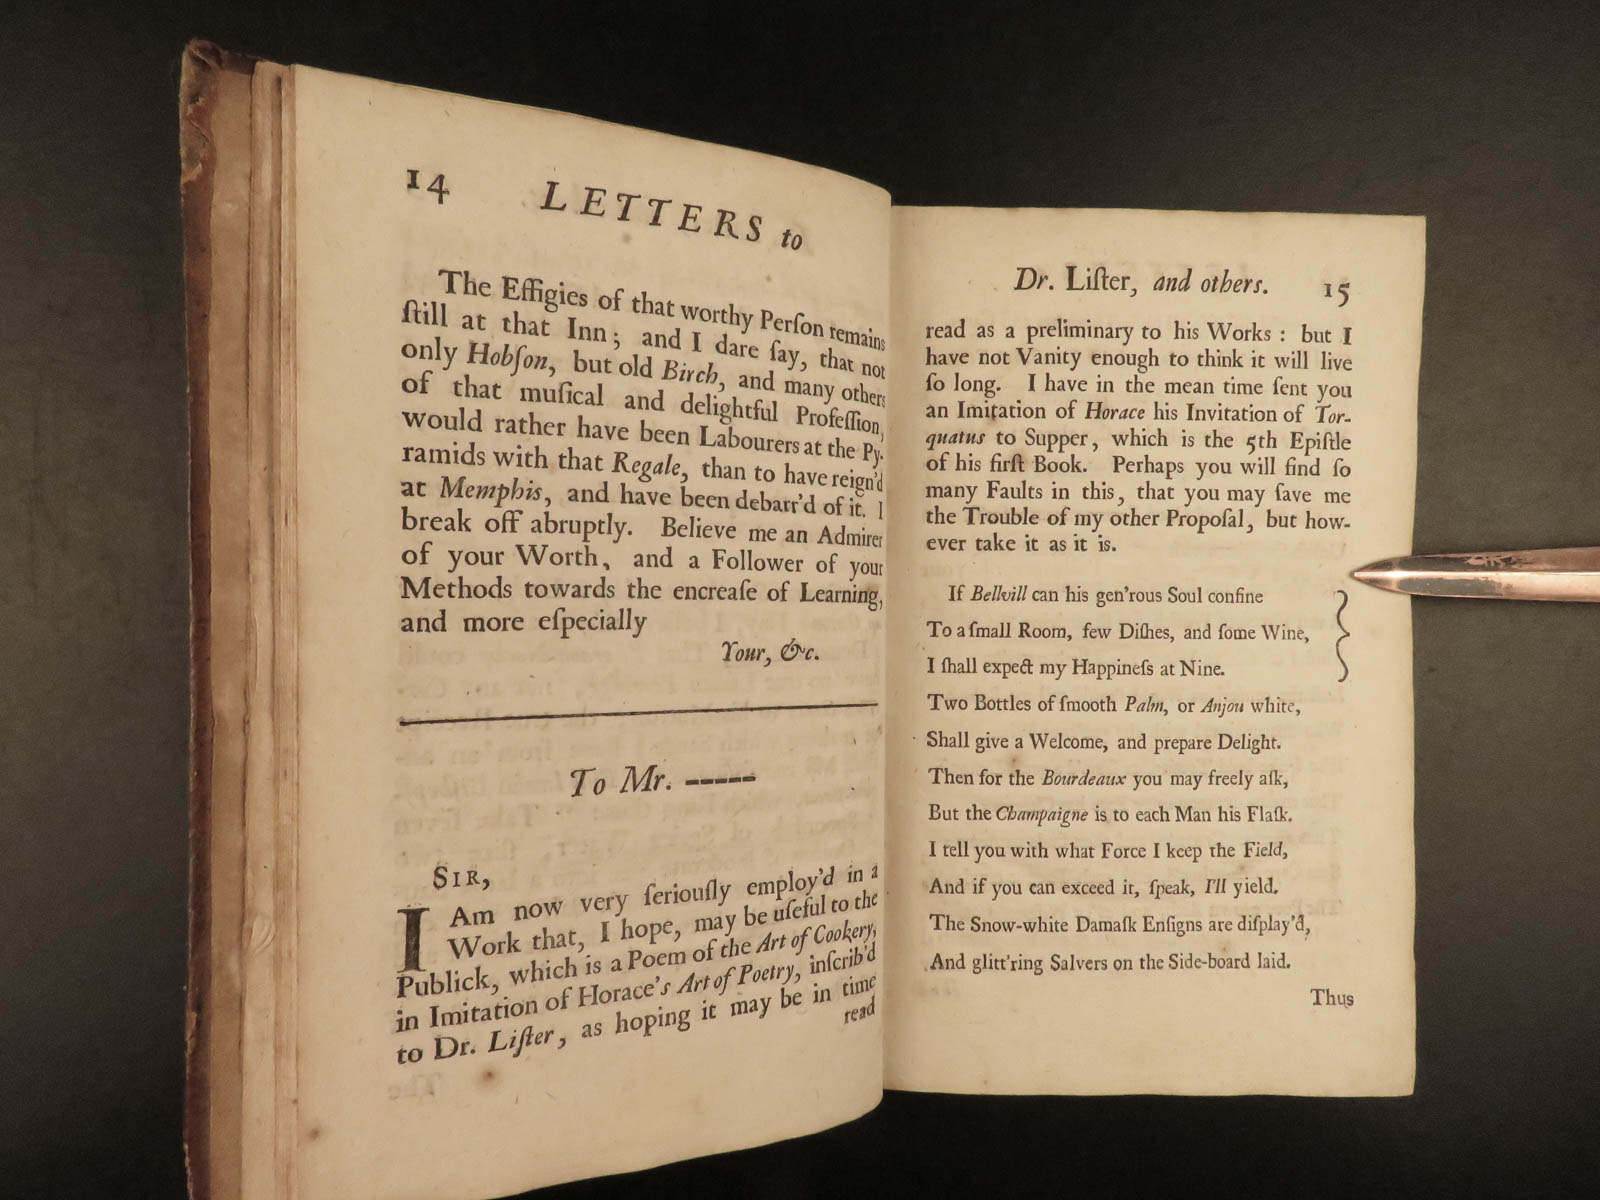 14 LETTERS to
The Effigies of that worthy Perſon remains
ſtill at that Inn; and I dare ſay, that not
only Hobſon, but old Birch, and many others
of that muſical and delightful Profeſſion,
would rather have been Labourers at the Py-
ramids with that Regale, than to have reign'd
at Memphis, and have been debarr'd of it. I
break off abruptly. Believe me an Admirer
of your Worth, and a Follower of your
Methods towards the encreaſe of Learning,
and more eſpecially
Your, &c.
To Mr. -----
SIR,
I Am now very ſeriouſly employ'd in a
Work that, I hope, may be uſeful to the
Publick, which is a Poem of the Art of Cookery,
in Imitation of Horace's Art of Poetry, inſcrib'd
to Dr. Liſter, as hoping it may be in time
read
Dr. Liſter, and others. 15
read as a preliminary to his Works : but I
have not Vanity enough to think it will live
ſo long. I have in the mean time ſent you
an Imitation of Horace his Invitation of Tor-
quatus to Supper, which is the 5th Epiſtle
of his firſt Book. Perhaps you will find ſo
many Faults in this, that you may ſave me
the Trouble of my other Propoſal, but how-
ever take it as it is.
If Bellvill can his gen'rous Soul confine
To a ſmall Room, few Diſhes, and ſome Wine,
I ſhall expect my Happineſs at Nine.
Two Bottles of ſmooth Palm, or Anjou white,
Shall give a Welcome, and prepare Delight.
Then for the Bourdeaux you may freely aſk,
But the Champaigne is to each Man his Flaſk.
I tell you with what Force I keep the Field,
And if you can exceed it, ſpeak, I'll yield.
The Snow-white Damaſk Enſigns are diſplay'd,
And glitt'ring Salvers on the Side-board laid.
Thus